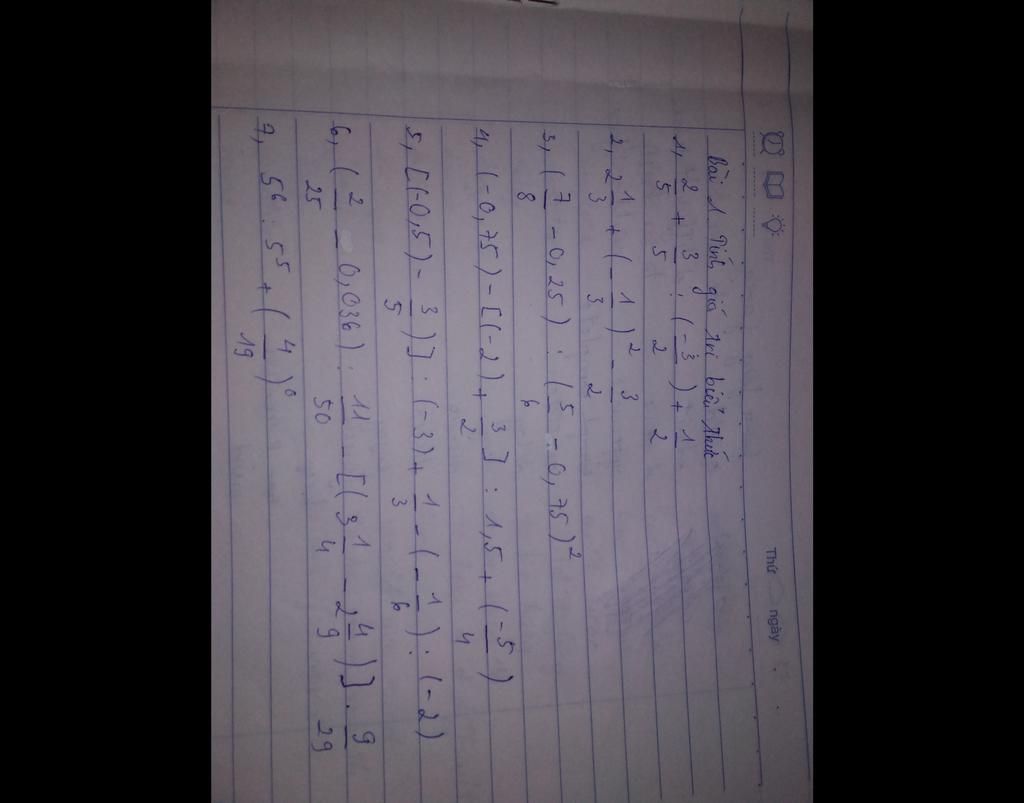 Thứ ngày
Bài 1 Tính giá trị biểu thức
1, 2/5 + 3/5 : (-3/2) + 1/2
2, 2 1/3 + (-1/3)² - 3/2
3, (7/8 - 0,25) : (5/6 - 0,75)²
4, (-0,75) - [(-2) + 3/2] : 1,5 + (-5/4)
5, [(-0,5) - 3/5)] : (-3) + 1/3 - (-1/6) : (-2)
6, (2/25 - 0,036) : 11/50 - [(3 1/4 - 2 4/9)] . 9/29
7, 5⁶ : 5⁵ + (4/19)⁰